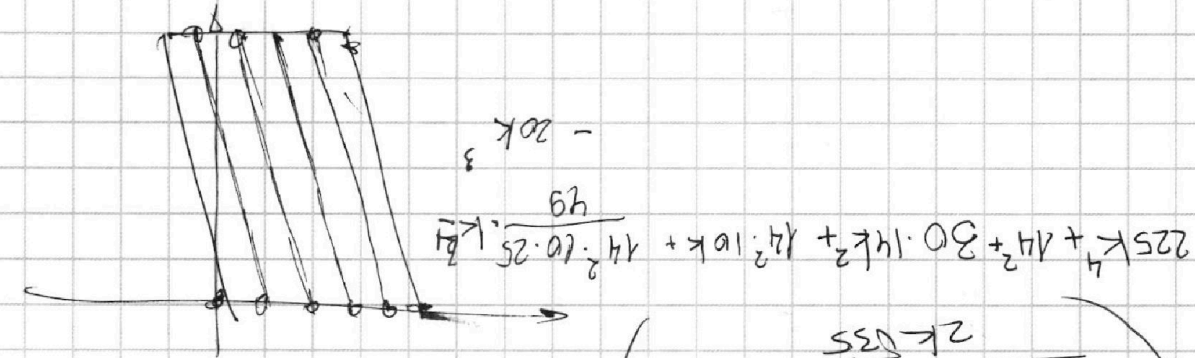 225k^4 + 14^2 + 30·14k^2 + 14^2·10k + \frac{14^2·10·25}{49}·k^3
- 20k^3